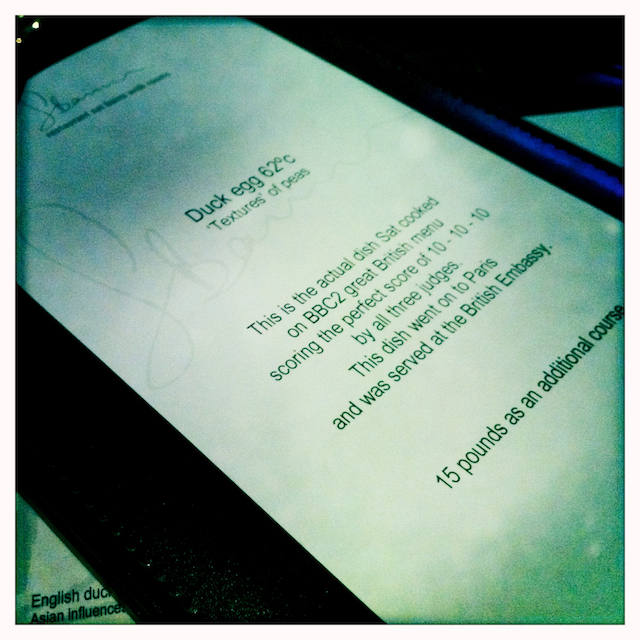 Sat Bains
restaurant sat bains with rooms
Duck egg 62°c
'Textures' of peas
This is the actual dish Sat cooked
on BBC2 great British menu
scoring the perfect score of 10 - 10 - 10
by all three judges.
This dish went on to Paris
and was served at the British Embassy.
15 pounds as an additional course
English duck
Asian influences